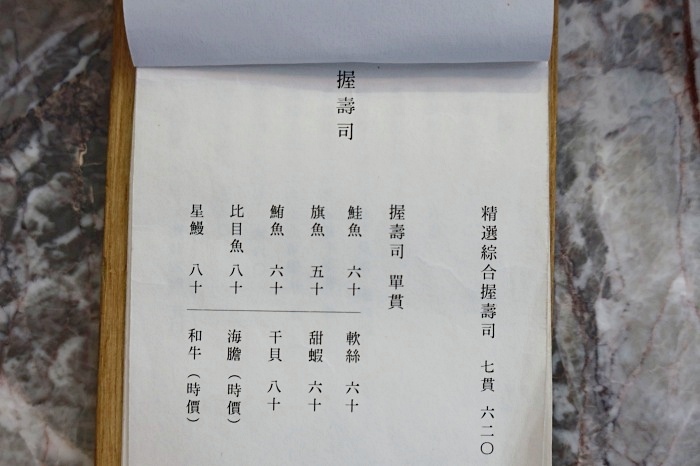 握壽司
精選綜合握壽司 七貫 六二〇
握壽司 單貫
鮭魚 六十
旗魚 五十
鮪魚 六十
比目魚 八十
星鰻 八十
軟絲 六十
甜蝦 六十
干貝 八十
海膽(時價)
和牛(時價)